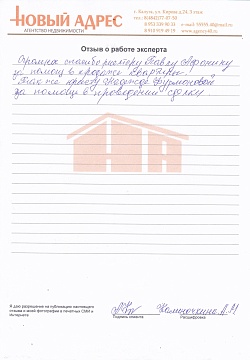 НОВЫЙ АДРЕС
АГЕНТСТВО НЕДВИЖИМОСТИ
г. Калуга, ул. Кирова д.23, 3 этаж
Отзыв о работе эксперта
Огромное спасибо риэлтору Павлу Афонину
за помощь в продаже квартиры.
Так же юристу Надежде Фурмановой
за помощь в проведении сделки
Я даю разрешение на публикацию настоящего
отзыва и моей фотографии в печатных СМИ и
Интернете
Подпись клиента
Расшифровка